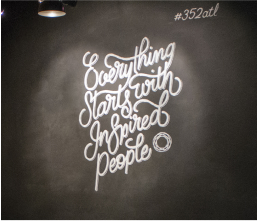 #352atl
Everything
Starts with
Inspired
People